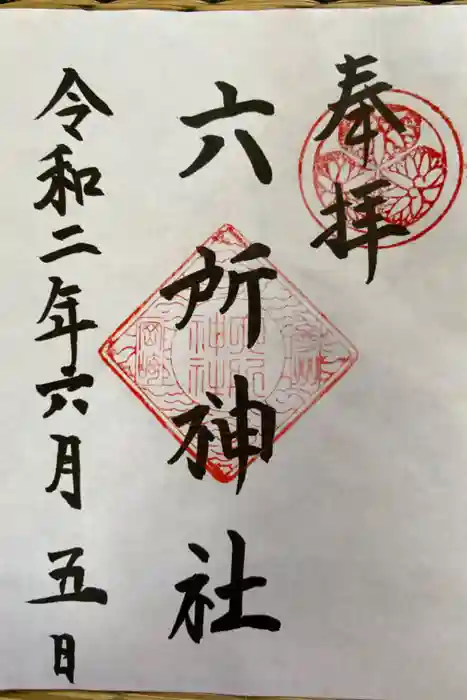 奉拝
六所神社
令和二年六月五日
岡崎